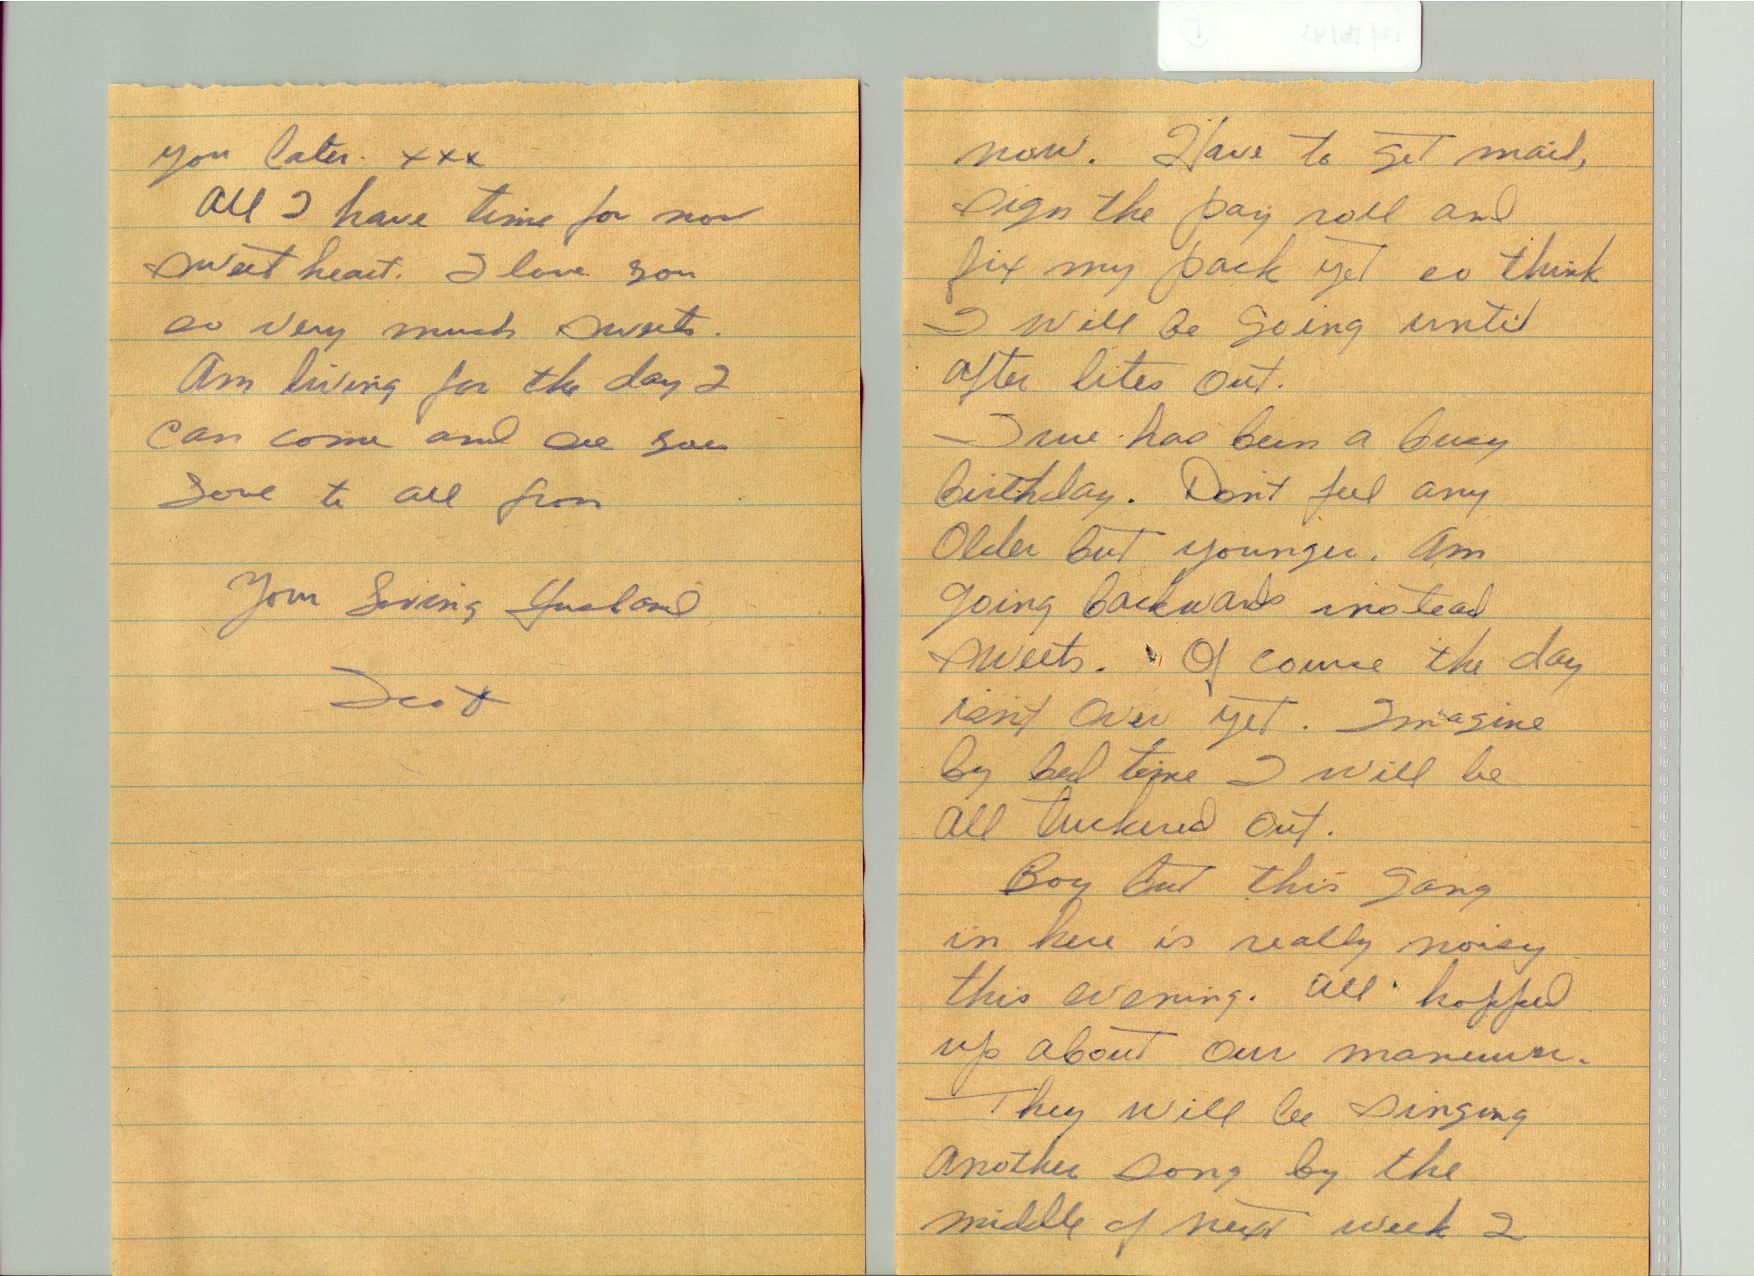 you later. xxx
All I have time for now
sweet heart. I love you
so very much sweets.
Am living for the day I
can come and see you
Love to all from
Your Loving Husband
now. Have to get mail,
sign the pay roll and
fix my pack yet so think
I will be going until
after lites out.
True has been a busy
birthday. Don't feel any
older but younger. Am
going backwards instead
sweets. Of course the day
isn't over yet. Imagine
by bed time I will be
all tuckered out.
Boy but this gang
in here is really noisy
this evening. All hopped
up about our maneuver.
They will be singing
another song by the
middle of next week I